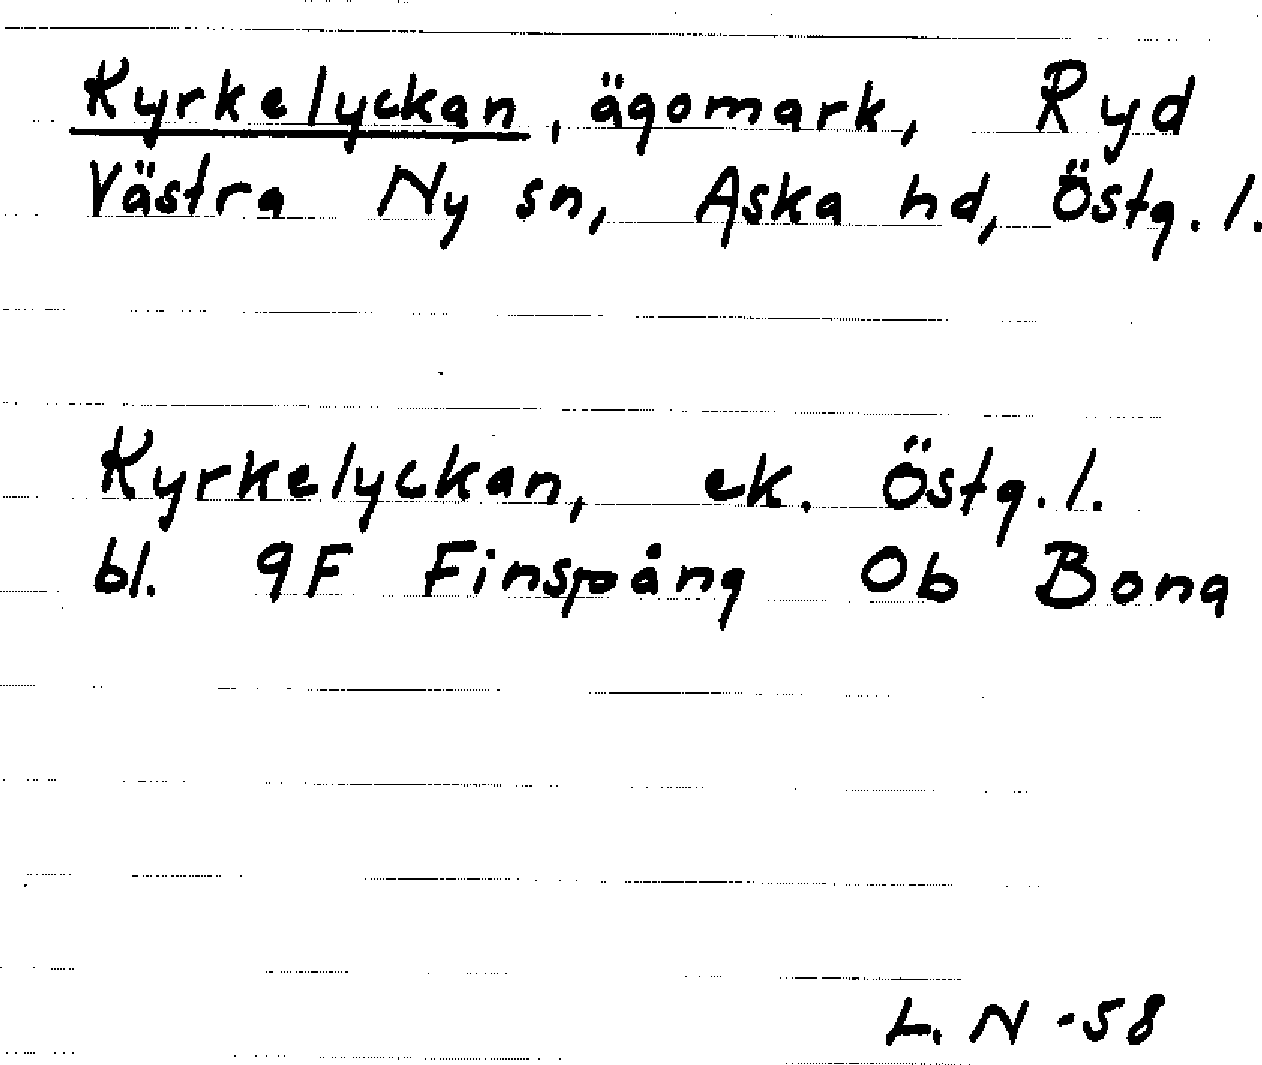 Kyrkelyckan, ägomark, Ryd
Västra Ny sn, Aska hd, Östg. l.
Kyrkelyckan, ek. Östg. l.
bl. 9F Finspång 0b Bona
L. N -58